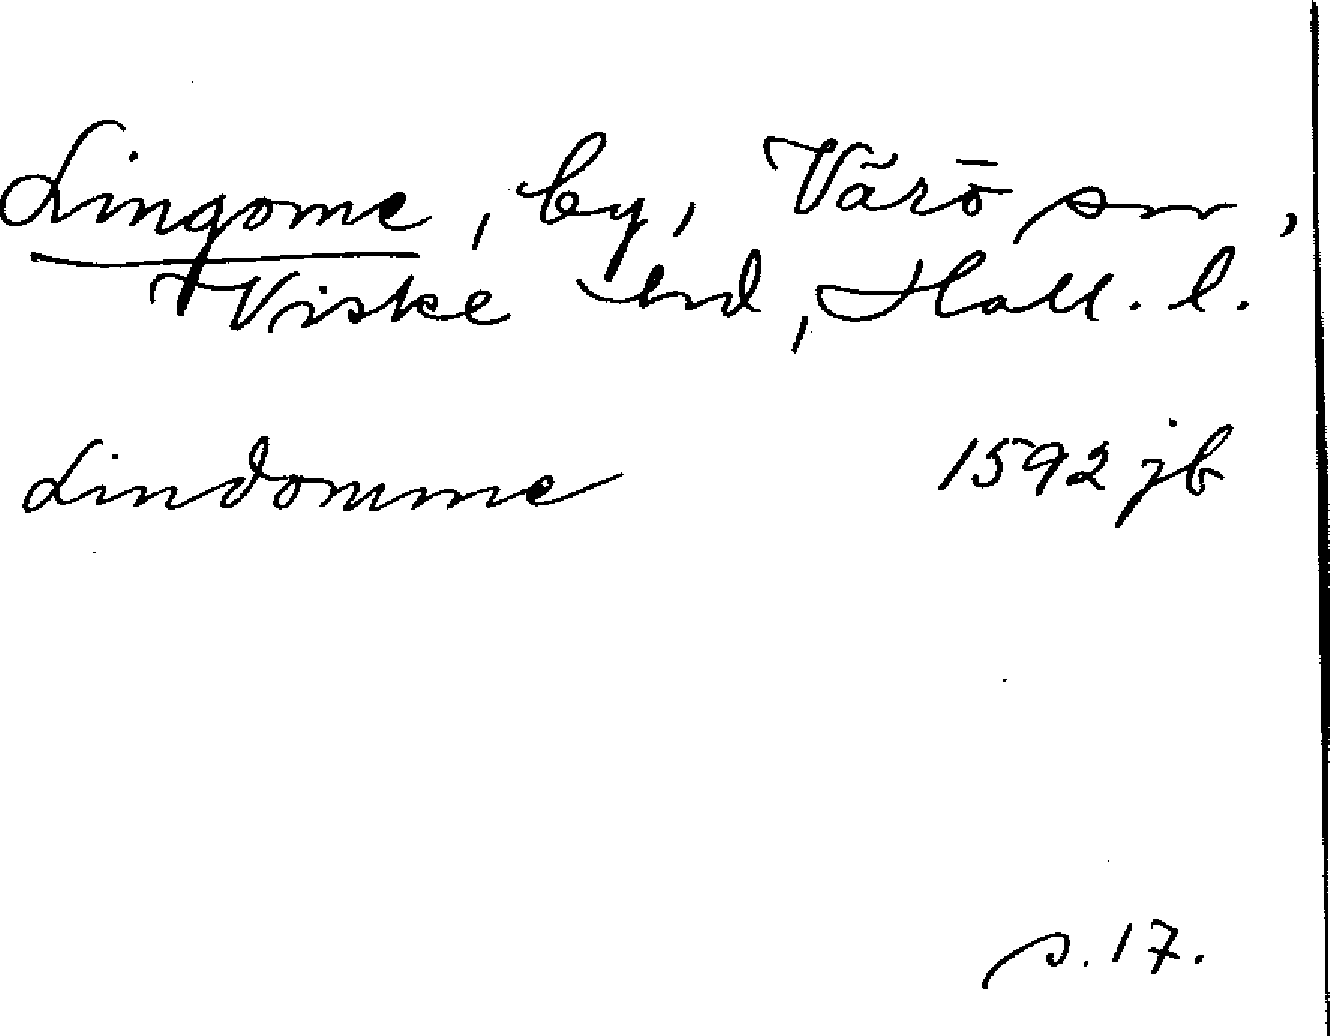 Lingome, by, Värö sn,
Viske hd, Hall. l.
Lindomme 1592 jb
s. 17.